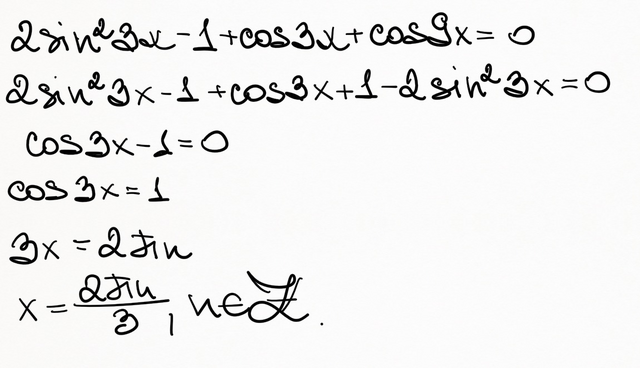 2sin²3x-1+cos3x+cos9x=0
2sin²3x-1+cos3x+1-2sin²3x=0
cos3x-1=0
cos3x=1
3x=2πn
x=2πn/3, n∈Z.